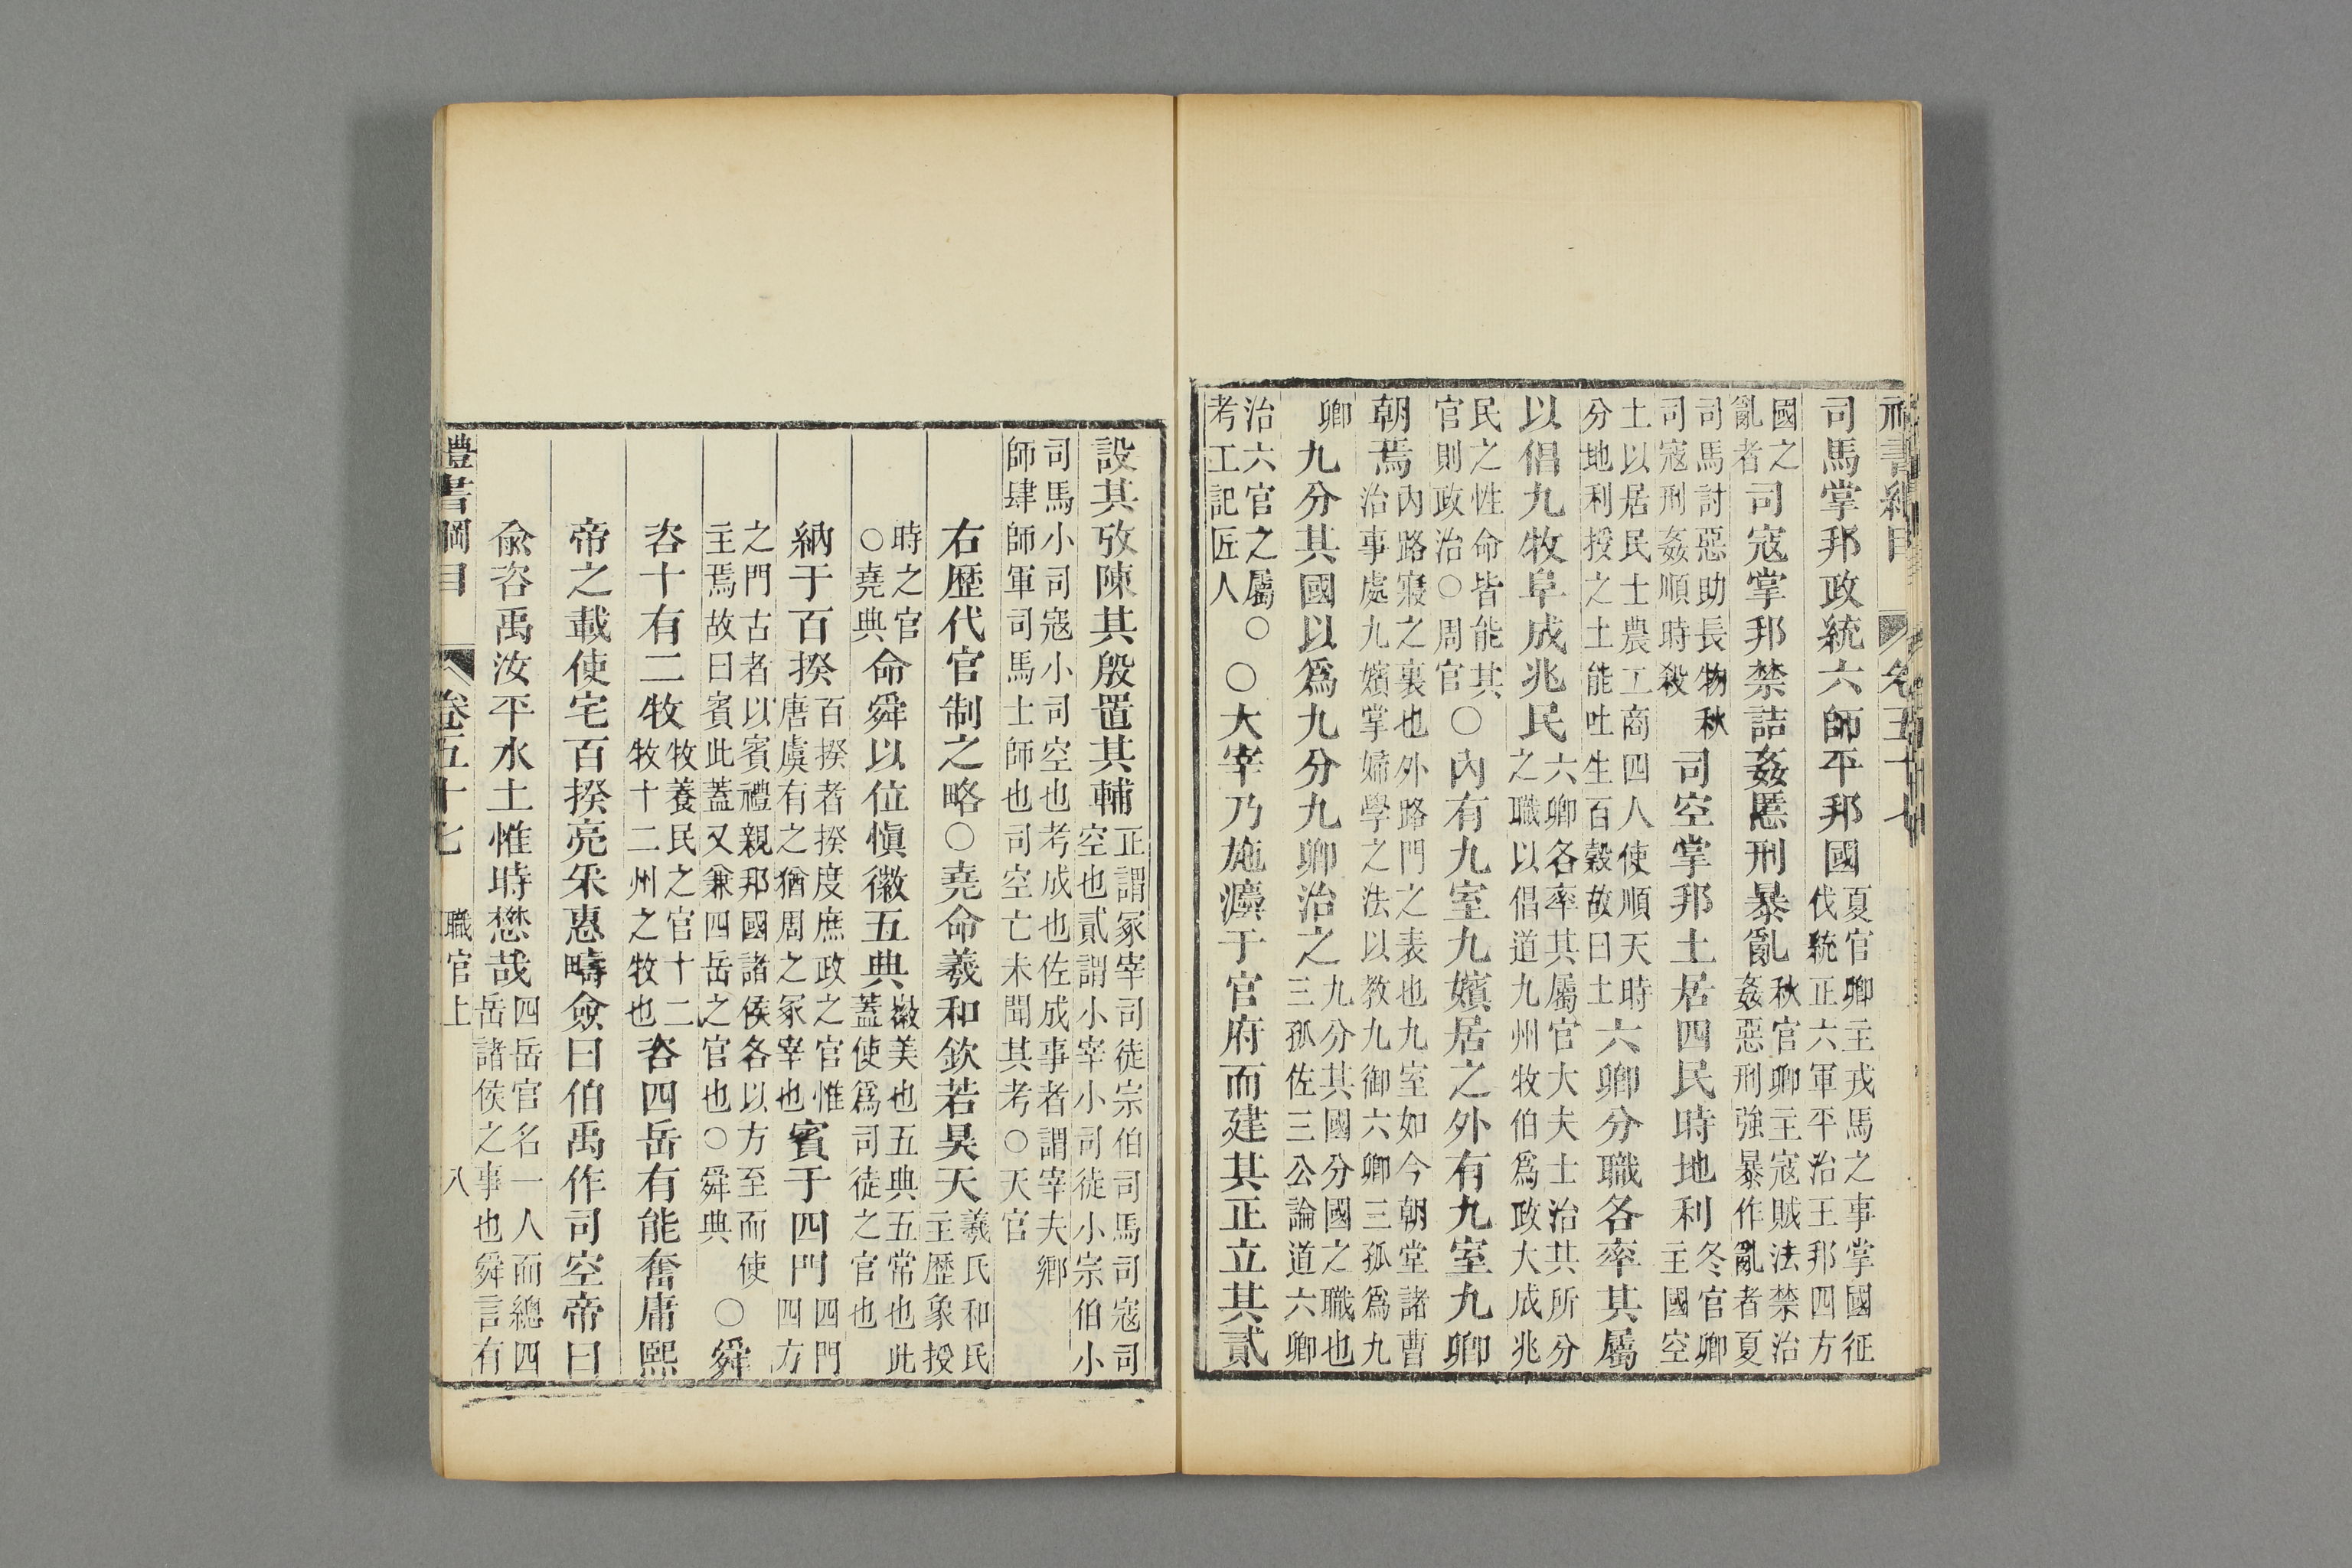 禮書綱目 卷五十七
司馬掌邦政統六師平邦國夏官卿主戎馬之事掌國征伐統正六軍平治王邦四方
國之亂者司寇掌邦禁詰姦慝刑暴亂秋官卿主寇賊法禁治姦惡刑強暴作亂者夏
司馬討惡助長物秋司寇刑姦順時殺司空掌邦土居四民時地利冬官卿主國空
土以居民士農工商四人使順天時分地利授之土能吐生百穀故曰土六卿分職各率其屬
以倡九牧阜成兆民六卿各率其屬官大夫士治其所分之職以倡道九州牧伯爲政大成兆
民之性命皆能其官則政治○周官○內有九室九嬪居之外有九室九卿
朝焉內路寢之裏也外路門之表也九室如今朝堂諸曹治事處九嬪掌婦學之法以教九御六卿三孤爲九
卿九分其國以爲九分九卿治之九分其國分國之職也三孤佐三公論道六卿
治六官之屬○考工記匠人○大宰乃施灋于官府而建其正立其貳
設其攷陳其殷置其輔正謂冢宰司徒宗伯司馬司寇司空也貳謂小宰小司徒小宗伯小
司馬小司寇小司空也考成也佐成事者謂宰夫鄉師肆師軍司馬士師也司空亡未聞其考○天官
右歷代官制之略○堯命羲和欽若昊天羲氏和氏主歷象授
時之官○堯典命舜以位愼徽五典徽美也五典五常也此蓋使爲司徒之官也
納于百揆百揆者揆度庶政之官惟唐虞有之猶周之冢宰也賓于四門四門四方
之門古者以賓禮親邦國諸侯各以方至而使主焉故曰賓此蓋又兼四岳之官也○舜典○舜
咨十有二牧牧養民之官十二牧十二州之牧也咨四岳有能奮庸熙
帝之載使宅百揆亮采惠疇僉曰伯禹作司空帝曰
俞咨禹汝平水土惟時懋哉四岳官名一人而總四岳諸侯之事也舜言有
禮書綱目 卷五十七 職官上 八